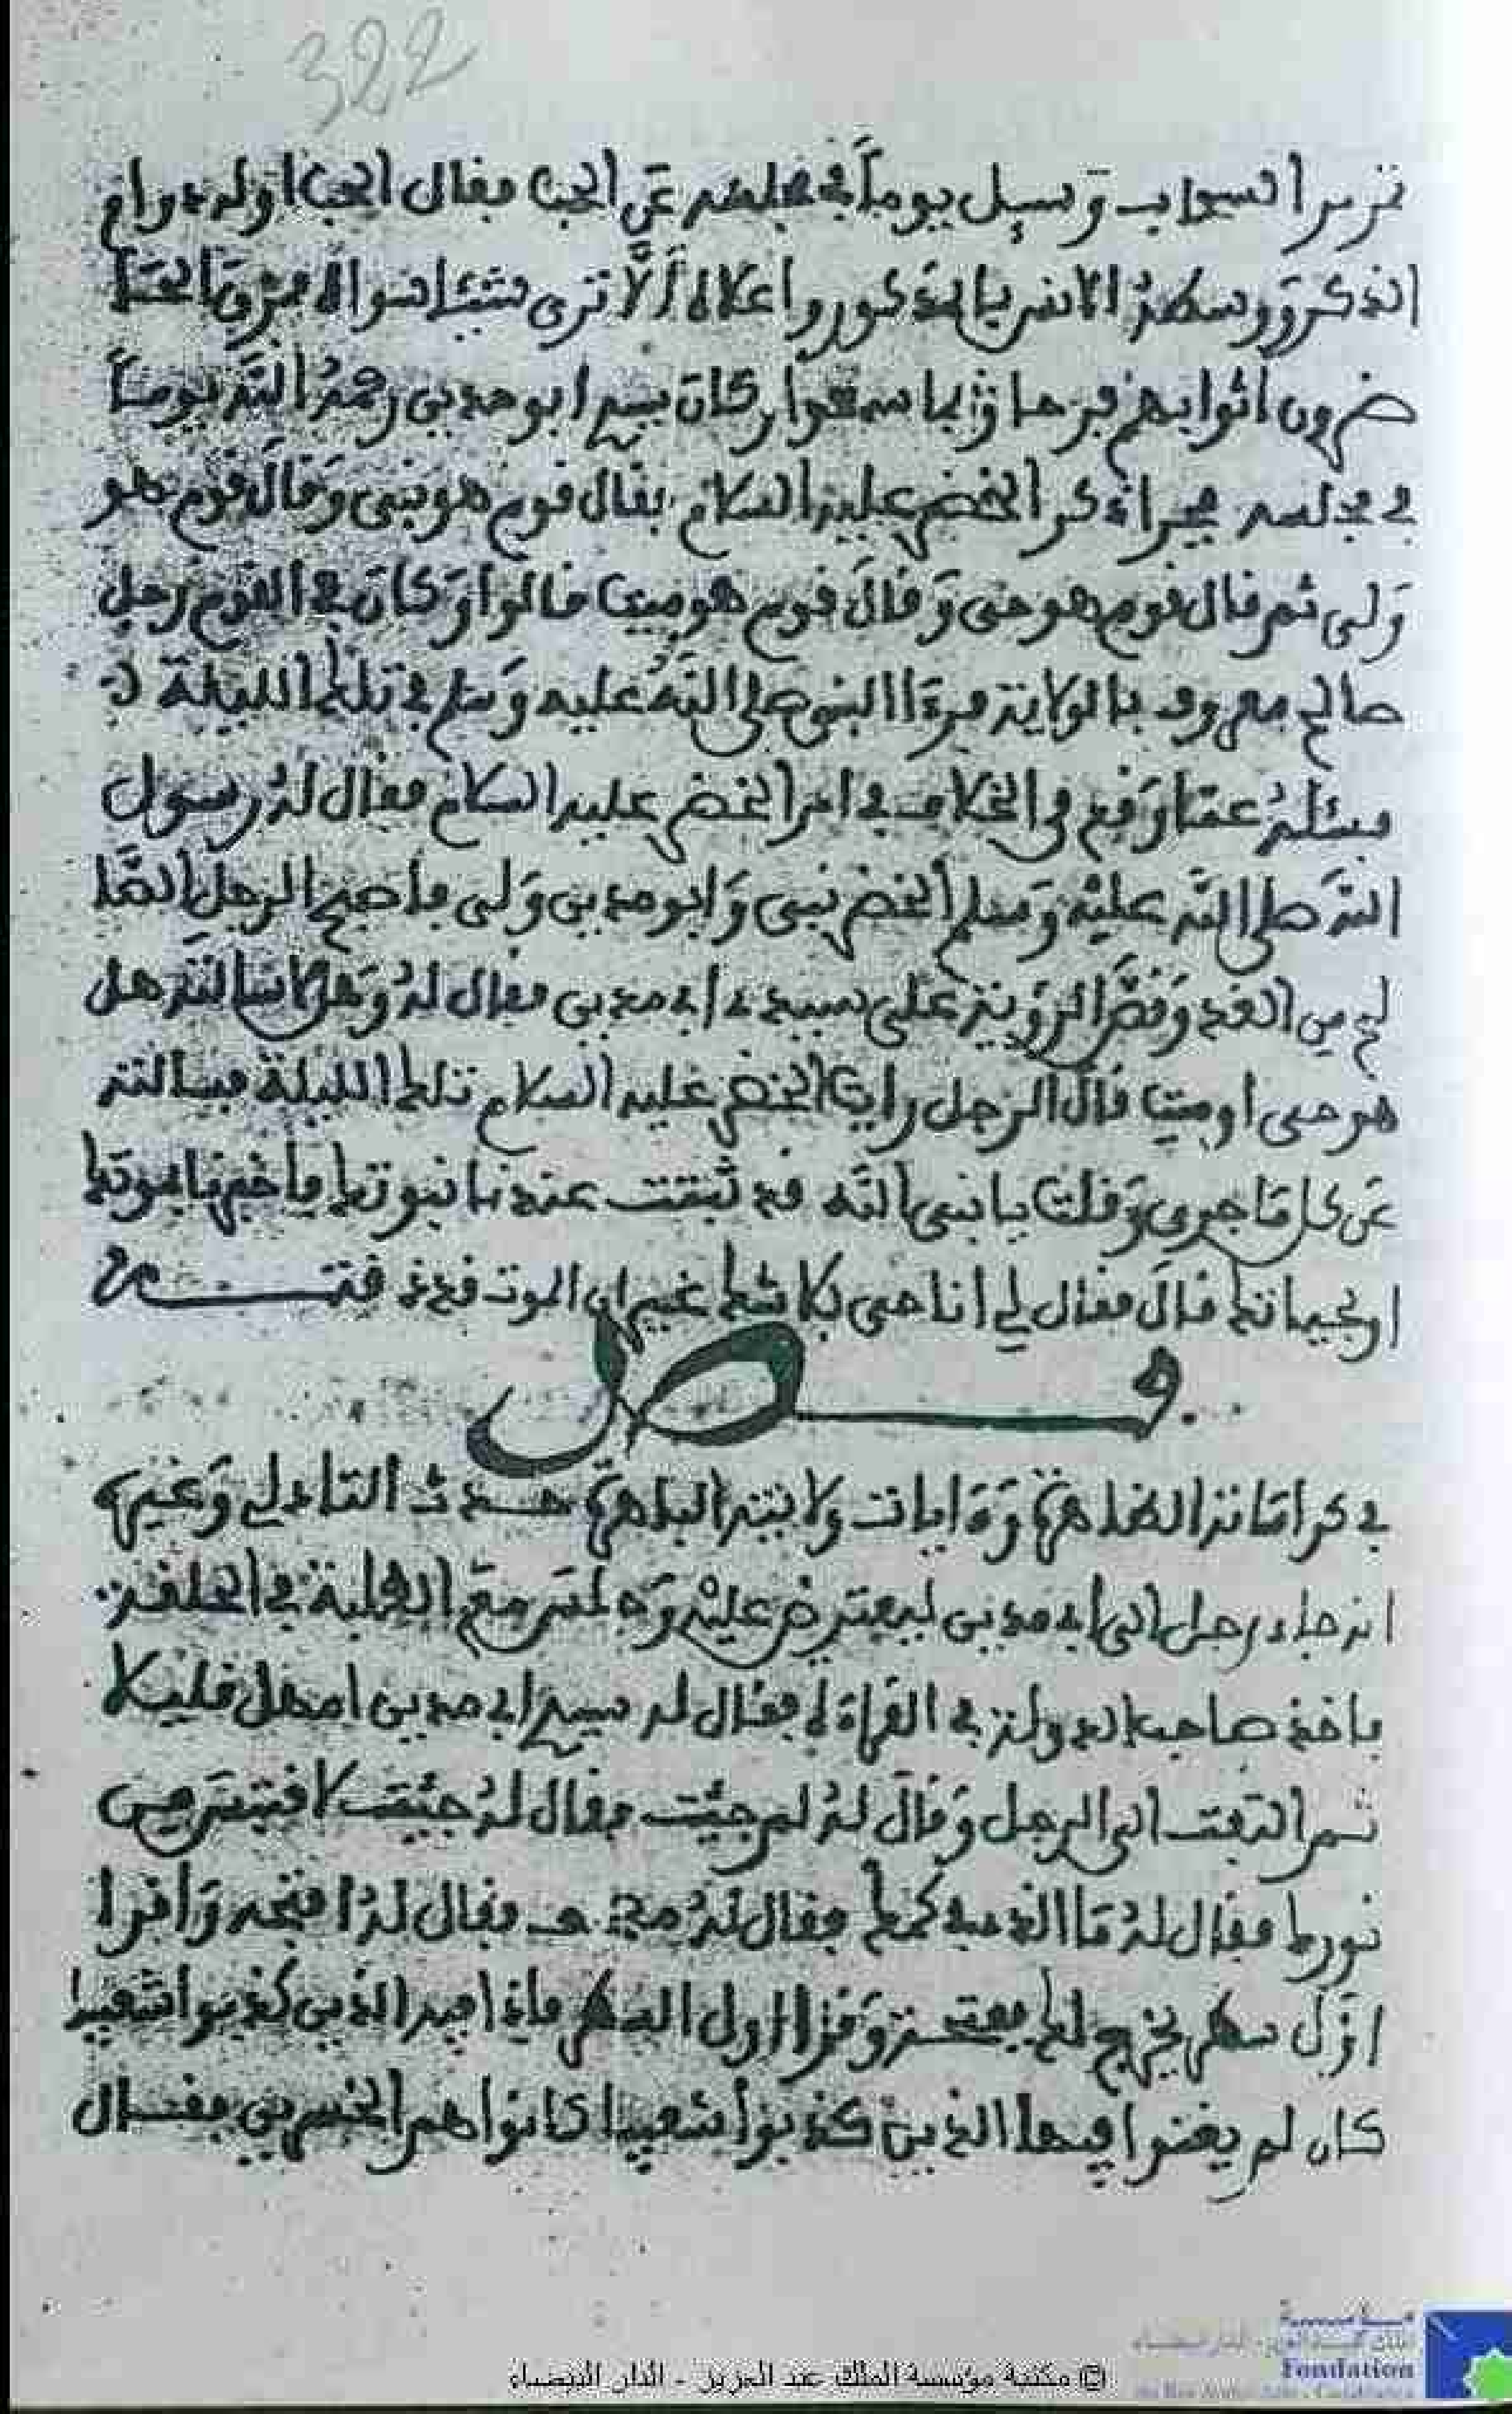 322
وسيل يوما في مجلسه عن الحب فقال الحب اوله دوام
الذكر ووسطه الانس بالمذكور واعلاه ألا ترى شيئا سواه فمزق الحا
ضرون أثوابهم فرحا بما سمعوا وكان سيد ابو مدين رحمه الله يوما
في مجلسه فجرا ذكر الخضر عليه السلام فقال قوم هو نبي وقال قوم هو
ولي ثم قال قوم هو حي وقال قوم هو ميت قالوا وكان في القوم رجل
صالح معروف بالولاية فرءا النبي صلى الله عليه وسلم في تلك الليلة
فسئله عما وقع في الخلاف في امر الخضر عليه السلام فقال له رسول
الله صلى الله عليه وسلم الخضر نبي وابو مدين ولي فأصبح الرجل الصا
لح من الغد وقص الرؤية على سيدي أبي مدين فقال له وهلا سالته هل
هو حي او ميت قال الرجل رايت الخضر عليه السلام تلك الليلة فسالته
عن كل ما جرى وقلت يا نبي الله قد ثبتت عندنا نبوتك فأخبرنا بموتك
او بحياتك قال فقال لي أنا حي بلا شك غير ان الموت
فصل
في كراماته الظاهرة وءايات ولايته الباهرة حدث التادلي وغيره
انه جاء رجل الى ابي مدين ليعترض عليه وجلس مع الطلبة في الحلقة
فاخذ صاحب الدولة في القراءة فقال له سيد ابي مدين امهل قليلا
ثم التفت الى الرجل وقال له لم جئت فقال له جئت لاقتبس من
نورك فقال له ما الذي في كمك فقال له مصحف فقال له افتحه وافرا
اول سطر يخرج لك ففتحه وقرا اول السطر فاذا فيه الذين كذبوا شعيبا
كان لم يغنوا فيها الذين كذبوا شعيبا كانوا هم الخسرين فقال
© مكتبة مؤسسة الملك عبد العزيز - الدار البيضاء
Fondation